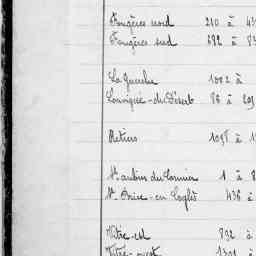 Fougères nord 210 à 43
Fougères sud 682 à 83
La Guerche 1002 à
Louvigné-du-Désert 86 à 209
Retiers 1098 à 1
St Aubin du Cormier 1 à 8
St Brice-en Coglès 436 à
Vitré-est 832 à
Vitré-ouest 1301 à